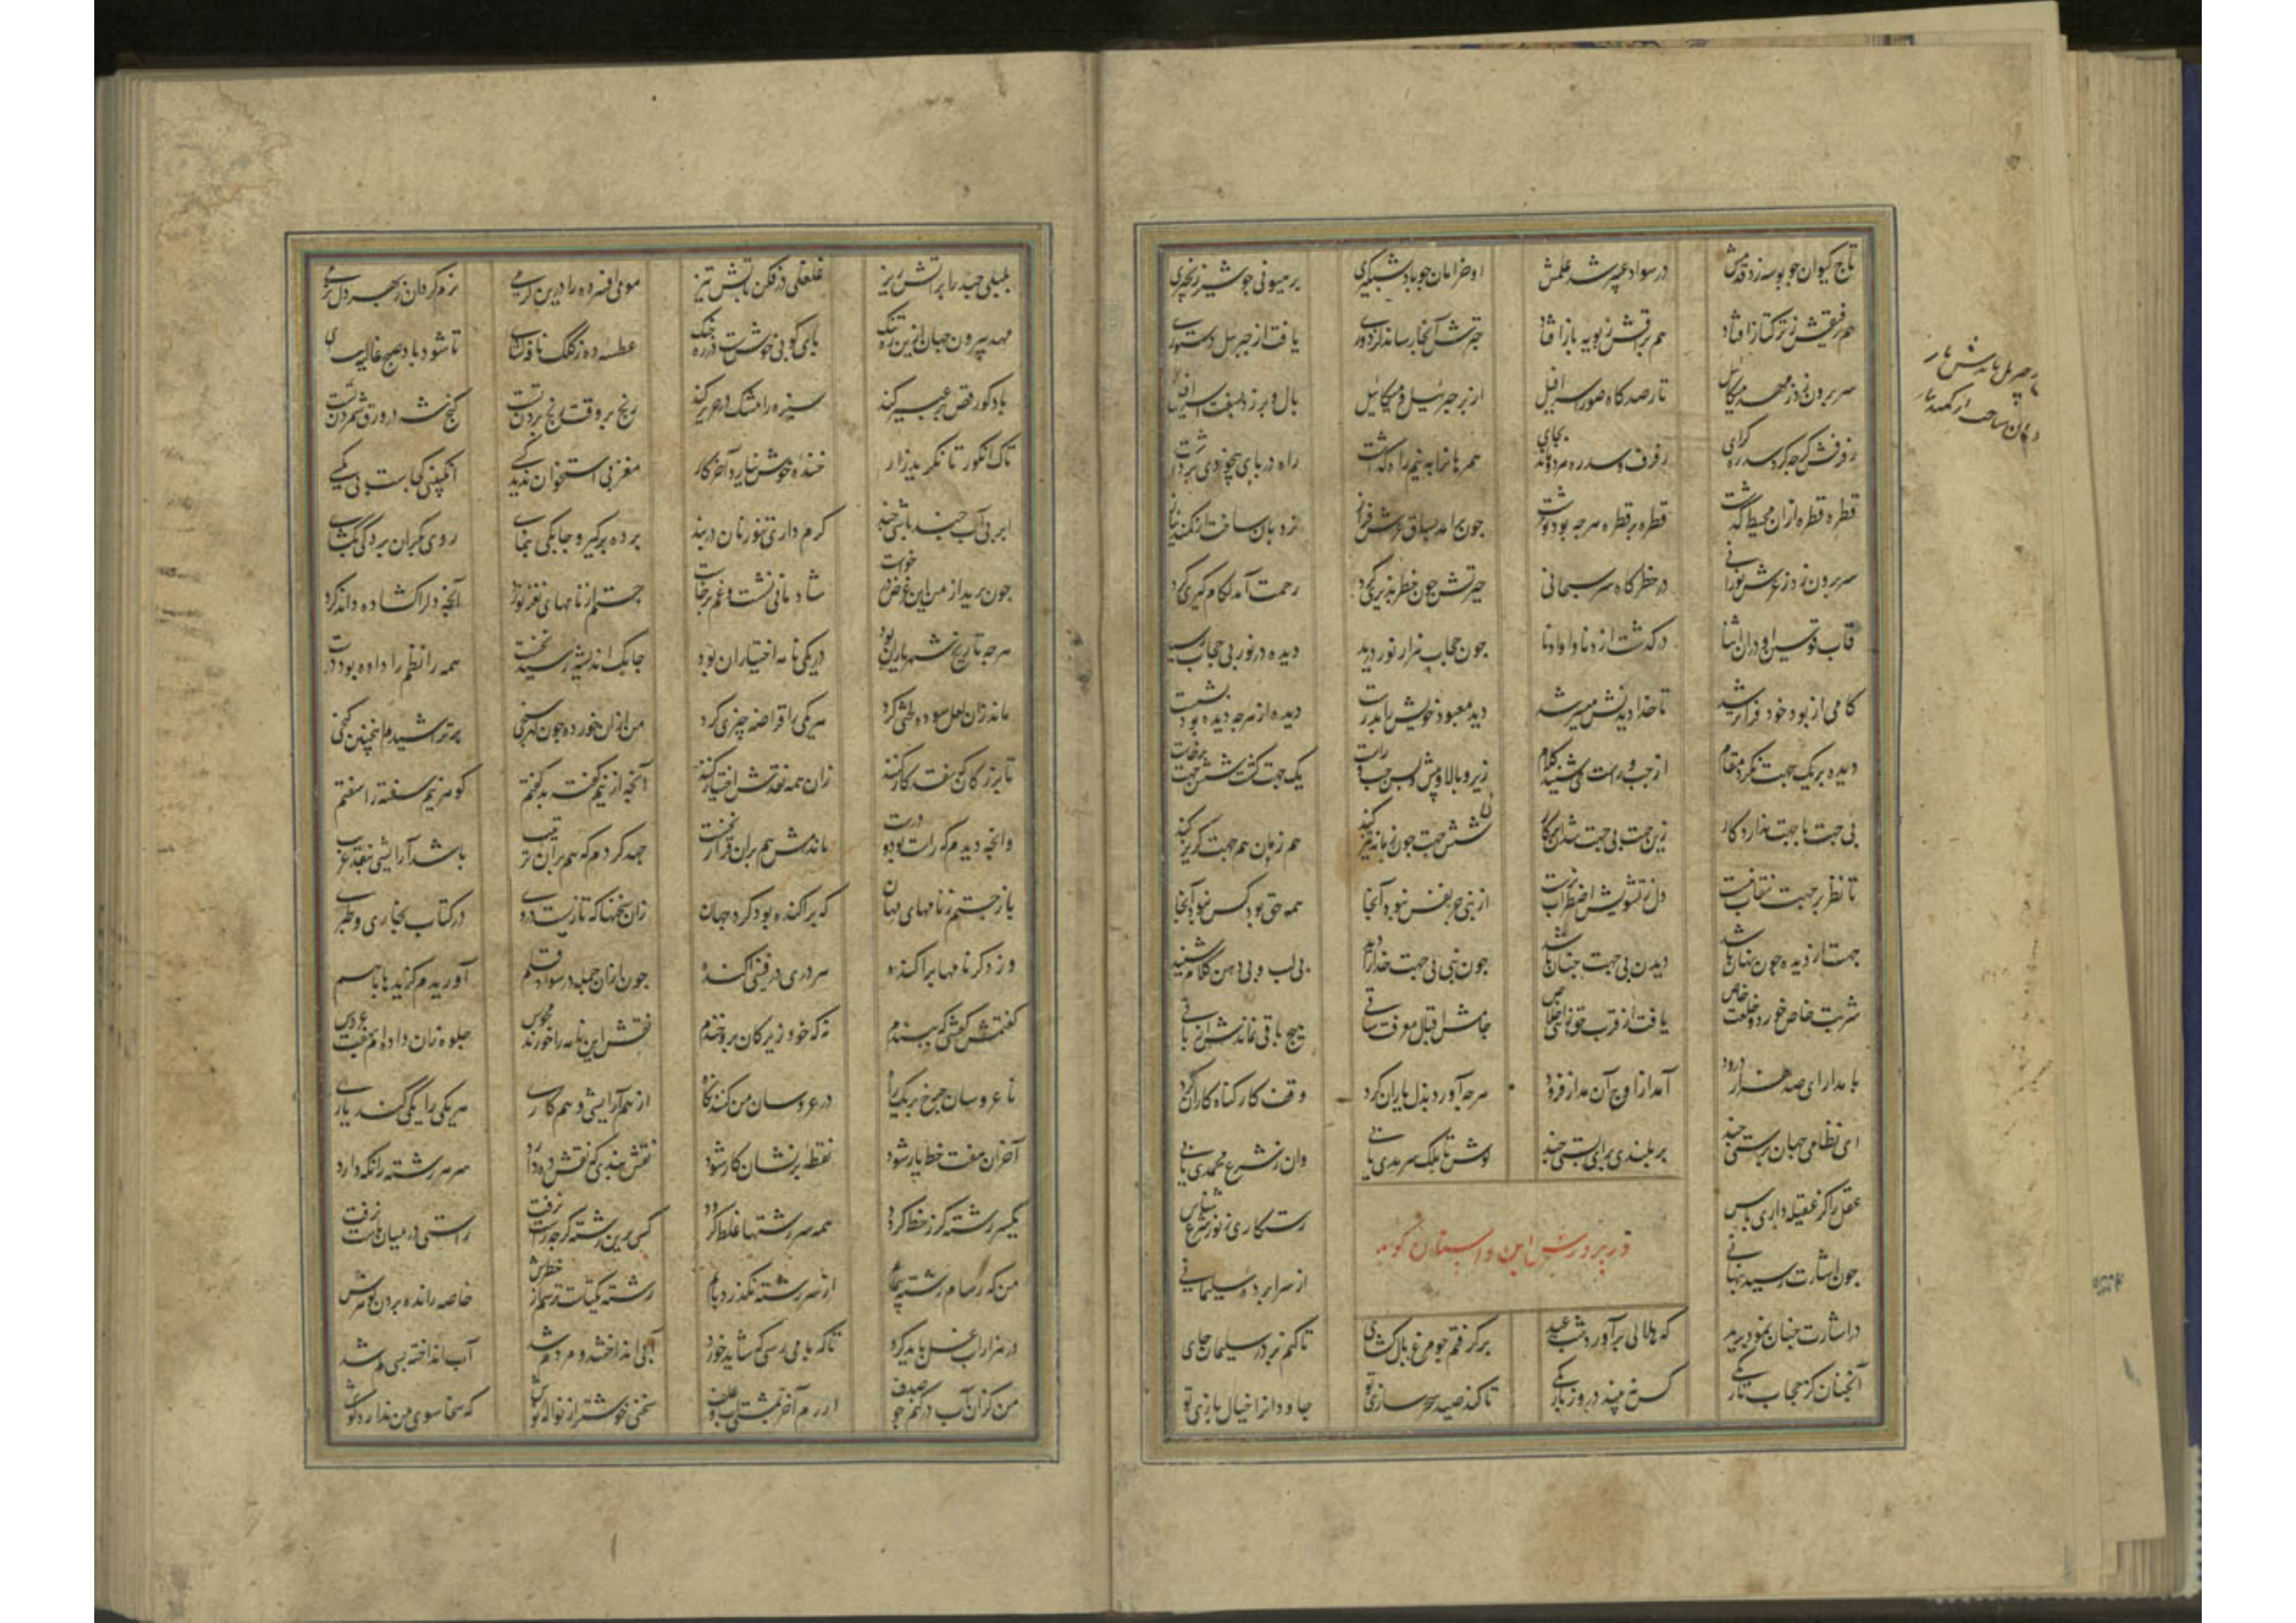 تاج کیوان جو بوسه زد قدمش در سواد عبیر شد علمش او خرامان جو باد شبگیری بر هیونی جو شیر زنجیری
هم رفیقش ز ترکتاز افتاد هم براقش ز پویه باز افتاد جترش آنجا رساند کز دوری یافت از جبرئیل دستوری
سر برون زد ز مهد میکائیل تا رصدگاه صور اسرافیل از بر جبرئیل و میکائیل بال و پر زد
رفرفش گرجه کرد سدره گرای رفرف و سدره هر دو ماند بجای همرهانرا به نیم راه گذاشت راه دریای بیخودی برداشت
قطره قطره ازان محیط گذشت قطره بر قطره هرجه بود نوشت جون برآمد بساق عرش فراز نردبان ساخت از کمند نیاز
سر برون زد ز عرش نورانی در خطرگاه سر سبحانی حیرتش جون خطر پذیری کرد رحمت آمد لگام گیری کرد
قاب قوسین او دران اثنا درگذشت از دنا و او ادنا جون حجاب هزار نور درید دیده در نور بی حجاب رسید
گامی از بود خود فراتر شد تا خدا دیدنش میسر شد دید معبود خویش را بدرست دیده از هرجه دیده بود بشست
دیده بر یک جهت نکرد مقام از جب و راست می شنید کلام زیر و بالا و پیش و پس جب و راست یک جهت گشت شش جهت برخاست
بی جهت با جهت ندارد کار زین جهت بی جهت شد آن کار شش جهت جون زبانه تیز کند هم زبان هم جهت گریز کند
تا نظر بر جهت نقاب نبست دل ز تشویش اضطراب نرست از نبی جز نفس نبود آنجا همه حق بود کس نبود آنجا
جهت از دیده جون نهان باشد دیدن بی جهت جنان باشد جون نبی بی جهت خدا را دید بی لب و بی دهن کلام شنید
شربت خاص خورد و خلعت خاص یافت از قرب حق اخلاص جامش اقبال و معرفت ساقی هیچ باقی نماندش از باقی
با مدارای صد هزار درود آمد از اوج آن مدار فرود هرجه آورد بذل یاران کرد وقف کار گناه کاران کرد
ای نظامی جهان پرستی جند بر بلندی برای پستی جند کوش تا ملک سرمدی یابی وان ز شرع محمدی یابی
عقل را گر عقیله داری پاس رستگاری ز نور شرع شناس
در پرورش این داستان گوید
جون اشارت رسید پنهانی از سرا پرده سلیمانی
در اشارت جنان نمود برید که هلالی برآورد شب عید پر گرفتم جو مرغ بال گشای تا کنم بر در سلیمان جای
آنجنان کز حجاب تاریکی کس نبیند درو ز باریکی تا کند صید سحر سازی تو جاودانرا خیال بازی تو
پلپلی جند را بر آتش ریز غلغلی در فکن بآتش تیز مومی افسرده را درین گرمی نرم گردان ز بهر دل نرمی
مهد بیرون جهان ازین ره تنگ پای کوبی خوش است در ره خنگ عطسه ده ز کلک نافه گشای تا شود باد صبح غالیه سای
باد گو رقص بر عبیر کند سبزه را مشک در حریر کند رنج بر وقت رنج بردن تست گنج شه در ورق شمردن تست
تاک انگور تا نگرید زار خنده خوش نیارد آخر کار مغز بی استخوان ندید کسی انگبینی کجاست بی مگسی
ابر بی آب جند باشی جند گرم داری تنور نان دربند برده برگیر و جابکی بنمای روی بکران بردگی بگشای
جون برید از من این غرض درخواست شادمانی نشست و غم برخاست جستم از نامهای نغز نورد آنجه دل را گشاده داند کرد
هرجه تاریخ شهریاران بود در یکی نامه اختیار آن بود جابک اندیشه رسید نخست همه را نظم داده بود درست
مانده زان لعل سوده لختی گرد هر یکی را قراضه جیزی کرد من ازان خورده جون گهر سنجی برتراشیدم اینجنین گنجی
تا بزرگان که نقد کار کنند زان همه نقدش اختیار کنند آنجه ازو نیم گفته بد گفتم گوهر نیم سفته را سفتم
وانجه دیدم که راست بود و درست ماندمش هم بران قرار نخست جهد کردم که هم بران ترتیب باشد آرایشی ز نقد غریب
باز جستم ز نامهای نهان که براکنده بود گرد جهان زان سخنها که تازیست و دری در کتاب بخاری و طبری
وز دگر نامها پراکنده هر دری در دفینی آکنده جون ازان جمله در سواد قلم آوریدم گزیدها باهم
گفتمش گفتنی که بپسندم نه که خود زیرکان برو خندم نقش این نامه را جو زند مجوس جلوه زان داده ام به هفت عروس
تا عروسان جرخ بر یک راه در عروسان من کنند نگاه از هم آرایشی و هم کاری هر یکی را یکی کند یاری
آخر از هفت خط که یار شود نقطه بر نشان کار شود نقش بندی که نقش ده دارد سر هر رشته را نگه دارد
یکسر رشته گر ز خط گردد همه سر رشتها غلط گردد کس برین رشته گرجه راست نرفت راستی در میان ماست نرفت
من که رسام رشته پیمایم از سر رشته نگذرد پایم رشته یکتاست ترسم از خطرش خاصه ز اندازه بردن گهرش
در هزار آب غسل باید کرد تا که بآبی رسی که شاید خورد آبی انداختند و مردم شد آب انداخته بسی گم شد
من کزان آب در کنم جو صدف ارزم آخر بمشتی آب و علف سخنی خوشتر از نواله نوش کی سخا سوی من ندارد گوش